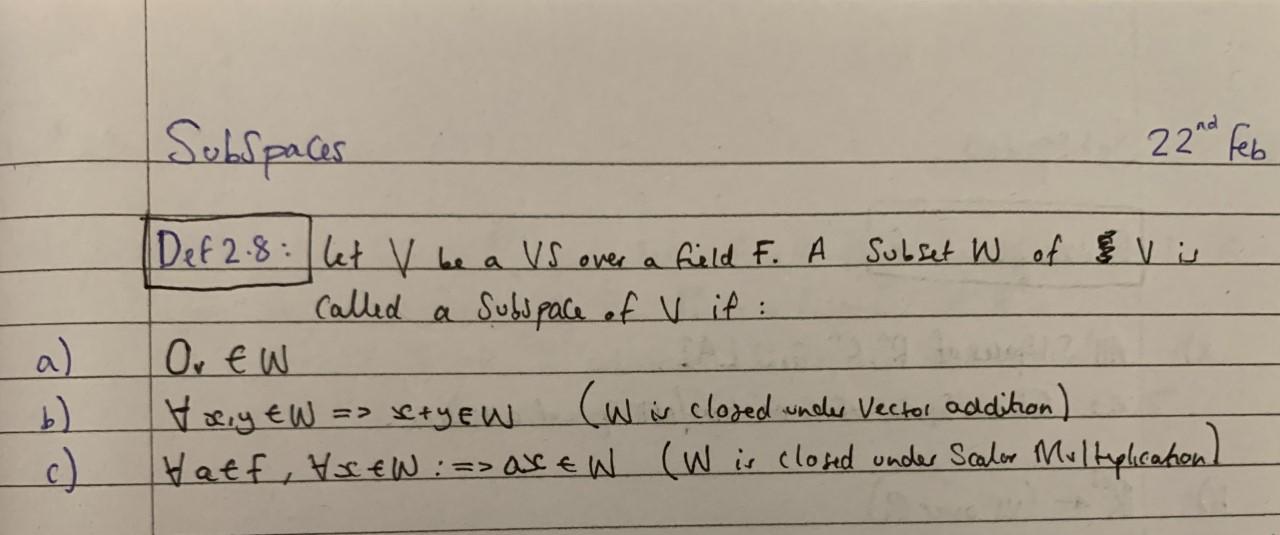 SubSpaces 22nd Feb
Def 2.8: let V be a VS over a field F. A Subset W of V is
Called a Subspace of V if :
a) 0v ∈ W
b) ∀ x,y ∈ W => x+y ∈ W (W is closed under Vector addition)
c) ∀ a ∈ f, ∀x ∈ W : => ax ∈ W (W is closed under Scalar Multiplication)